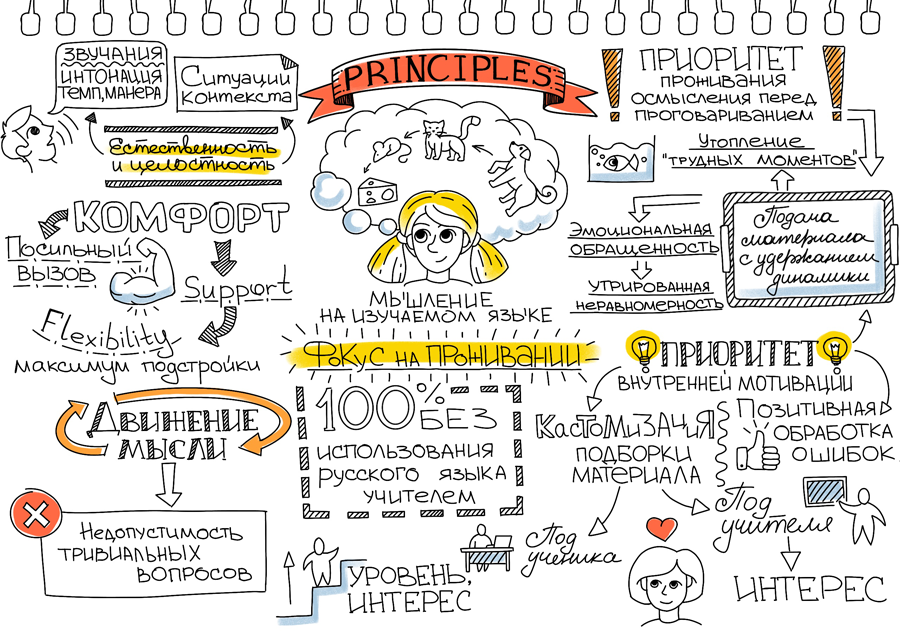 PRINCIPLES
ЗВУЧАНИЯ
ИНТОНАЦИЯ
ТЕМП, МАНЕРА
Ситуации
Контекста
Естественность
и целостность
КОМФОРТ
Посильный
вызов
Support
Flexibility
максимум подстройки
Движение
мысли
Недопустимость
тривиальных
вопросов
МЫШЛЕНИЕ
НА ИЗУЧАЕМОМ ЯЗЫКЕ
Фокус на проживании
100% БЕЗ
использования
русского языка
учителем
УРОВЕНЬ,
ИНТЕРЕС
ПРИОРИТЕТ
проживания
осмысления перед
проговариванием
Утопление
"трудных моментов"
Эмоциональная
обращенность
Утрированная
неравномерность
Подача
материала
с удержанием
динамики
ПРИОРИТЕТ
внутренней мотивации
Кастомизация
подборки
материала
Позитивная
обработка
ошибок
Под
ученика
Под
учителя
ИНТЕРЕС